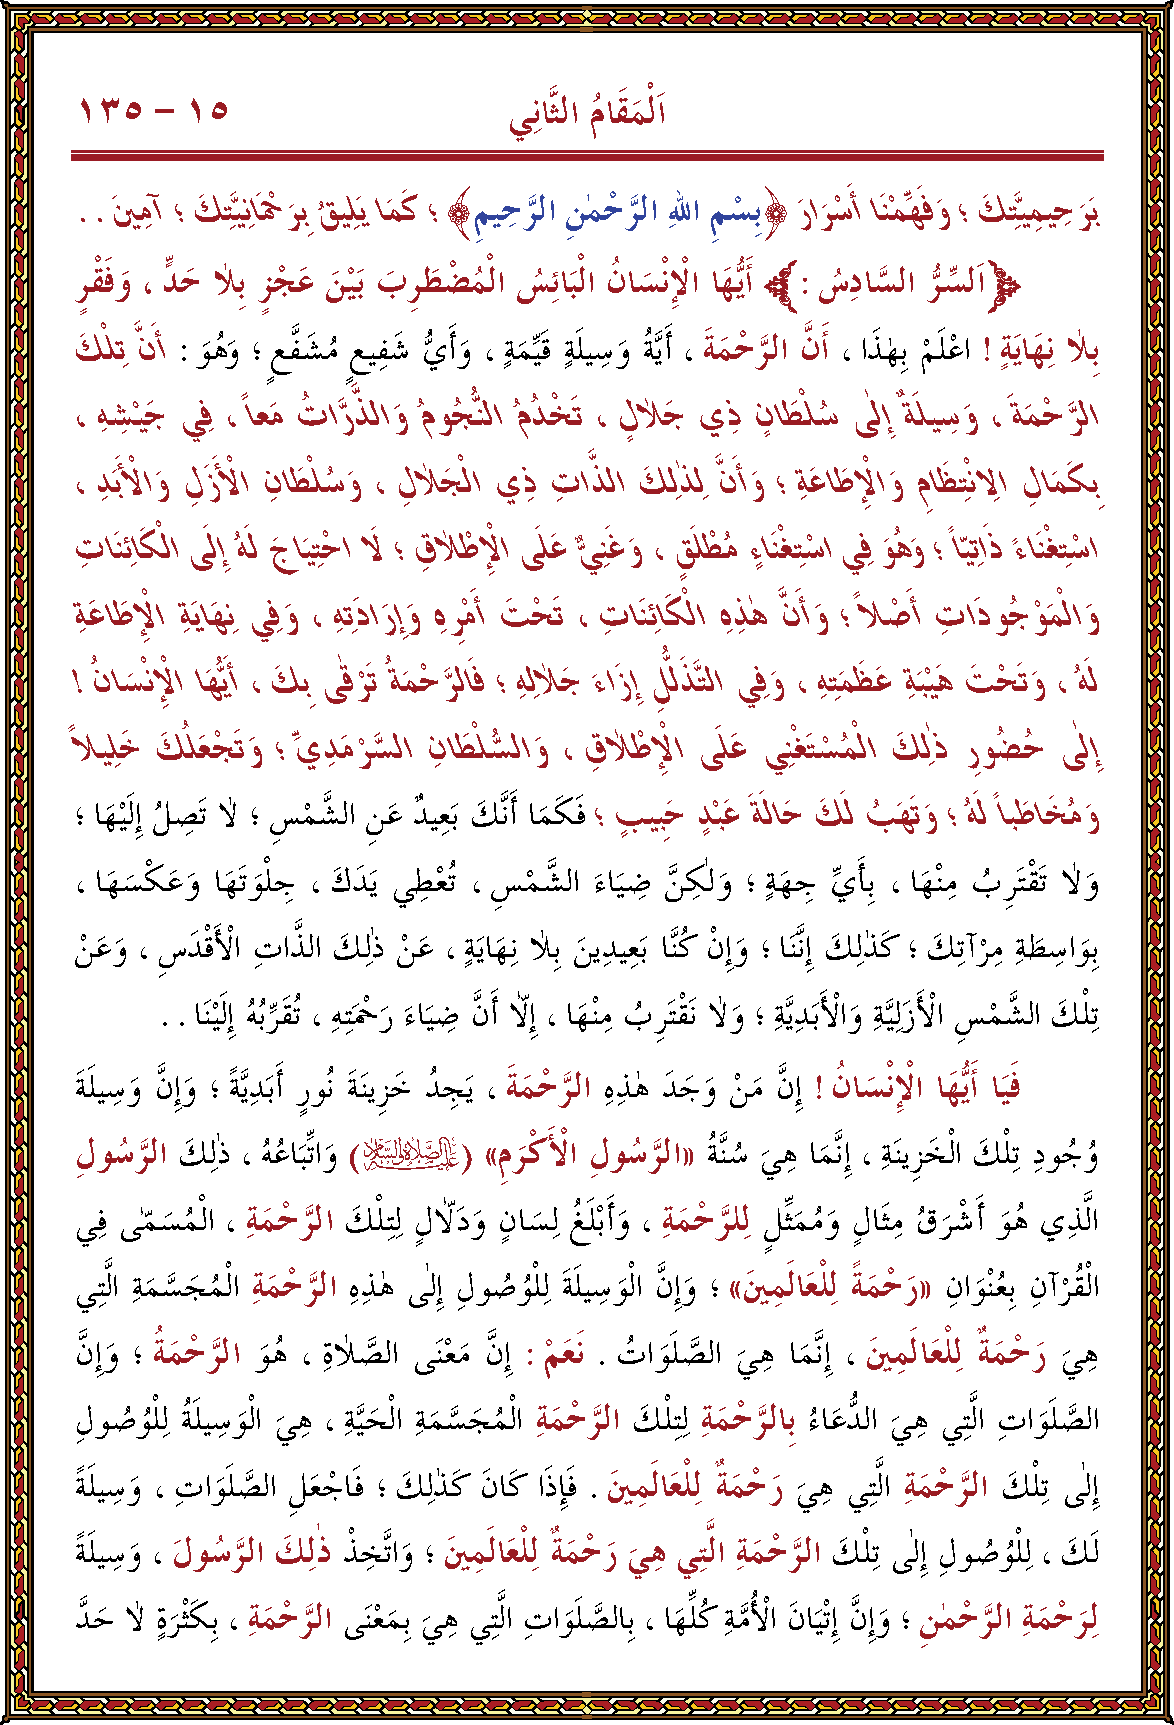 اَلْمَقَامُ الثَّانِي ١٥ – ١٣٥
بَرَحِيمِيَّتِكَ ؛ وَفَهِّمْنَا أَسْرَارَ ﴿بِسْمِ اللهِ الرَّحْمٰنِ الرَّحِيمِ﴾ ؛ كَمَا يَلِيقُ بِرَحْمَانِيَّتِكَ ؛ آمِينَ . .
﴿اَلسِّرُّ السَّادِسُ : ﴾ أَيُّهَا الْإِنْسَانُ الْبَائِسُ الْمُضْطَرِبَ بَيْنَ عَجْزٍ بِلاٰ حَدٍّ ، وَفَقْرٍ
بِلاٰ نِهَايَةٍ ! اعْلَمْ بِهٰذَا ، أَنَّ الرَّحْمَةَ ، أَيَّةُ وَسِيلَةٍ قَيِّمَةٍ ، وَأَيُّ شَفِيعٍ مُشَفَّعٍ ؛ وَهُوَ : أَنَّ تِلْكَ
الرَّحْمَةَ ، وَسِيلَةٌ إِلٰى سُلْطَانٍ ذِي جَلاٰلٍ ، تَخْدُمُ النُّجُومُ وَالذَّرَّاتُ مَعاً ، فِي جَيْشِهِ ،
بِكَمَالِ الِانْتِظَامِ وَالْإِطَاعَةِ ؛ وَأَنَّ لِذٰلِكَ الذَّاتِ ذِي الْجَلاٰلِ ، وَسُلْطَانِ الْأَزَلِ وَالْأَبَدِ ،
اسْتِغْنَاءً ذَاتِيّاً ؛ وَهُوَ فِي اسْتِغْنَاءٍ مُطْلَقٍ ، وَغَنِيٌّ عَلَى الْإِطْلاٰقِ ؛ لَا احْتِيَاجَ لَهُ إِلَى الْكَائِنَاتِ
وَالْمَوْجُودَاتِ أَصْلاً ؛ وَأَنَّ هٰذِهِ الْكَائِنَاتِ ، تَحْتَ أَمْرِهِ وَإِرَادَتِهِ ، وَفِي نِهَايَةِ الْإِطَاعَةِ
لَهُ ، وَتَحْتَ هَيْبَةِ عَظَمَتِهِ ، وَفِي التَّذَلُّلِ إِزَاءَ جَلاٰلِهِ ؛ فَالرَّحْمَةُ تَرْقٰى بِكَ ، أَيُّهَا الْإِنْسَانُ !
إِلٰى حُضُورِ ذٰلِكَ الْمُسْتَغْنِي عَلَى الْإِطْلاٰقِ ، وَالسُّلْطَانِ السَّرْمَدِيِّ ؛ وَتَجْعَلُكَ خَلِيلاً
وَمُخَاطَباً لَهُ ؛ وَتَهَبُ لَكَ حَالَةَ عَبْدٍ حَبِيبٍ ؛ فَكَمَا أَنَّكَ بَعِيدٌ عَنِ الشَّمْسِ ؛ لاٰ تَصِلُ إِلَيْهَا ؛
وَلاٰ تَقْتَرِبُ مِنْهَا ، بِأَيِّ جِهَةٍ ؛ وَلٰكِنَّ ضِيَاءَ الشَّمْسِ ، تُعْطِي يَدَكَ ، جِلْوَتَهَا وَعَكْسَهَا ،
بِوَاسِطَةِ مِرْآتِكَ ؛ كَذٰلِكَ إِنَّنَا ؛ وَإِنْ كُنَّا بَعِيدِينَ بِلاٰ نِهَايَةٍ ، عَنْ ذٰلِكَ الذَّاتِ الْأَقْدَسِ ، وَعَنْ
تِلْكَ الشَّمْسِ الْأَزَلِيَّةِ وَالْأَبَدِيَّةِ ؛ وَلاٰ نَقْتَرِبُ مِنْهَا ، إِلاّٰ أَنَّ ضِيَاءَ رَحْمَتِهِ ، تُقَرِّبُهُ إِلَيْنَا . .
فَيَا أَيُّهَا الْإِنْسَانُ ! إِنَّ مَنْ وَجَدَ هٰذِهِ الرَّحْمَةَ ، يَجِدُ خَزِينَةَ نُورٍ أَبَدِيَّةً ؛ وَإِنَّ وَسِيلَةَ
وُجُودِ تِلْكَ الْخَزِينَةِ ، إِنَّمَا هِيَ سُنَّةُ «الرَّسُولِ الْأَكْرَمِ» (عَلَيْهِ الصَّلاٰةُ وَالسَّلاٰمُ) وَاتِّبَاعُهُ ، ذٰلِكَ الرَّسُولِ
الَّذِي هُوَ أَشْرَقُ مِثَالٍ وَمُمَثِّلٍ لِلرَّحْمَةِ ، وَأَبْلَغُ لِسَانٍ وَدَلاّٰلٍ لِتِلْكَ الرَّحْمَةِ ، الْمُسَمّٰى فِي
الْقُرْآنِ بِعُنْوَانِ «رَحْمَةً لِلْعَالَمِينَ» ؛ وَإِنَّ الْوَسِيلَةَ لِلْوُصُولِ إِلٰى هٰذِهِ الرَّحْمَةِ الْمُجَسَّمَةِ الَّتِي
هِيَ رَحْمَةٌ لِلْعَالَمِينَ ، إِنَّمَا هِيَ الصَّلَوَاتُ . نَعَمْ : إِنَّ مَعْنَى الصَّلاٰةِ ، هُوَ الرَّحْمَةُ ؛ وَإِنَّ
الصَّلَوَاتِ الَّتِي هِيَ الدُّعَاءُ بِالرَّحْمَةِ لِتِلْكَ الرَّحْمَةِ الْمُجَسَّمَةِ الْحَيَّةِ ، هِيَ الْوَسِيلَةُ لِلْوُصُولِ
إِلٰى تِلْكَ الرَّحْمَةِ الَّتِي هِيَ رَحْمَةٌ لِلْعَالَمِينَ . فَإِذَا كَانَ كَذٰلِكَ ؛ فَاجْعَلِ الصَّلَوَاتِ ، وَسِيلَةً
لَكَ ، لِلْوُصُولِ إِلٰى تِلْكَ الرَّحْمَةِ الَّتِي هِيَ رَحْمَةٌ لِلْعَالَمِينَ ؛ وَاتَّخِذْ ذٰلِكَ الرَّسُولَ ، وَسِيلَةً
لِرَحْمَةِ الرَّحْمٰنِ ؛ وَإِنَّ إِتْيَانَ الْأُمَّةِ كُلِّهَا ، بِالصَّلَوَاتِ الَّتِي هِيَ بِمَعْنَى الرَّحْمَةِ ، بِكَثْرَةٍ لاٰ حَدَّ